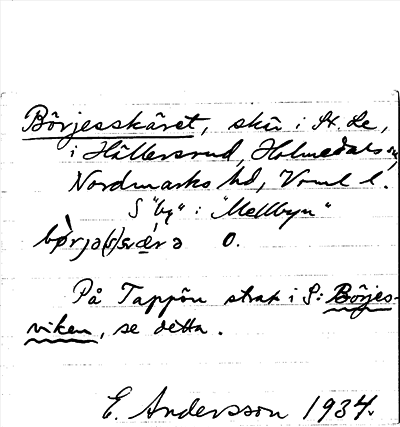 Börjesskäret, skär i St. Le,
i Hällersrud, Holmedals sn,
Nordmarks hd, Vrml l.
S "by" : "Mellbyn"
bø̀rja(s)ʂæ̀rə O.
På Tappön strax i S: Börjes-
viken, se detta.
E. Andersson 1934.